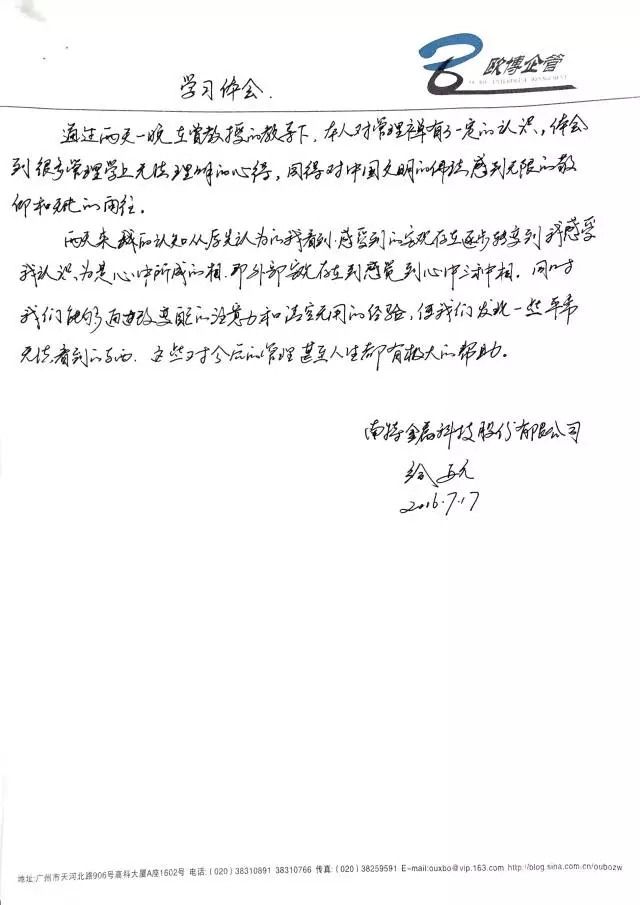 欧博企管
OU BO ENTERPRISE MANAGEMENT
学习体会.
通过两天一晚在曾教授的教导下,本人对管理禅有了一定的认识,体会
到很多管理学上无法理解的心得,同得对中国文明的佛法感到无限的敬
仰和无比的向往。
两天来我的认知从原先认为的我看到、感受到的客观存在逐步转变到我感受
我认识、为是心中所成的相.即外部客观存在到感觉到心中三种相.同时
我们能够通过改变自己的注意力和清空无用的经验,使我们发现一些平常
无法看到的东西.这些对今后的管理甚至人生都有极大的帮助。
南特金属科技股份有限公司
2016.7.17
地址:广州市天河北路906号高科大厦A座1602号 电话:(020)38310891 38310766 传真:(020)38259591 E-mail:ouxbo@vip.163.com http://blog.sina.com.cn/oubozw